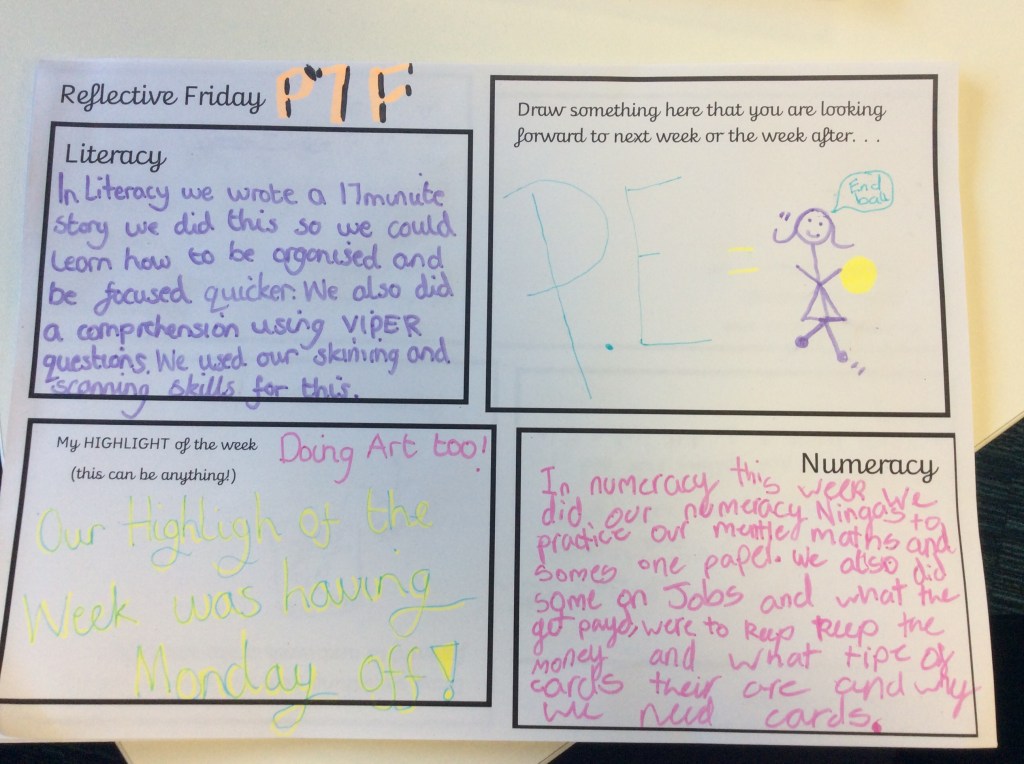 Reflective Friday P7F
Literacy
In Literacy we wrote a 17 minuite
story we did this so we could
learn how to be organised and
be focused quicker. We also did
a comprehension using VIPER
questions. We used our skiming and
scanning skills for this.
Draw something here that you are looking
forward to next week or the week after. . .
P.E =
End
ball
My HIGHLIGHT of the week
(this can be anything!)
Doing Art too!
Our Highligh of the
Week was having
Monday off!
Numeracy
In numeracy this week we
did our numeracy Ningas to
practice our mentle maths and
somes one paper. We also did
some on Jobs and what the
get payd, were to keep keep the
money and what tipe of
cards their are and why
we need cards.